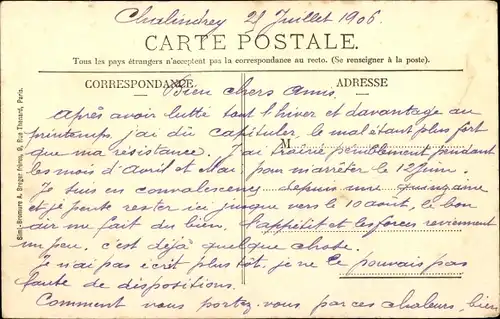 Chalindrey 21 Juillet 1906.
CARTE POSTALE.
Tous les pays étrangers n'acceptent pas la correspondance au recto. (Se renseigner à la poste).
CORRESPONDANCE
ADRESSE
Bien chers amis.
Après avoir lutté tout l'hiver et davantage au
printemps, j'ai dû capituler, le mal étant plus fort
M
que ma résistance. J'ai traîné péniblement pendant
les mois d'Avril et Mai, pour m'arrêter le 12 juin.
Je suis en convalescence depuis une quinzaine
et je pense rester ici jusque vers le 10 août, le bon
air me fait du bien, l'appétit et les forces reviennent
un peu, c'est déjà quelque chose.
Je n'ai pas écrit plus tôt, je ne le pouvais pas
faute de dispositions.
Comment vous portez-vous par ces chaleurs, bien
Simi-Bromure A. Breger frères, 9, Rue Thénard, Paris.